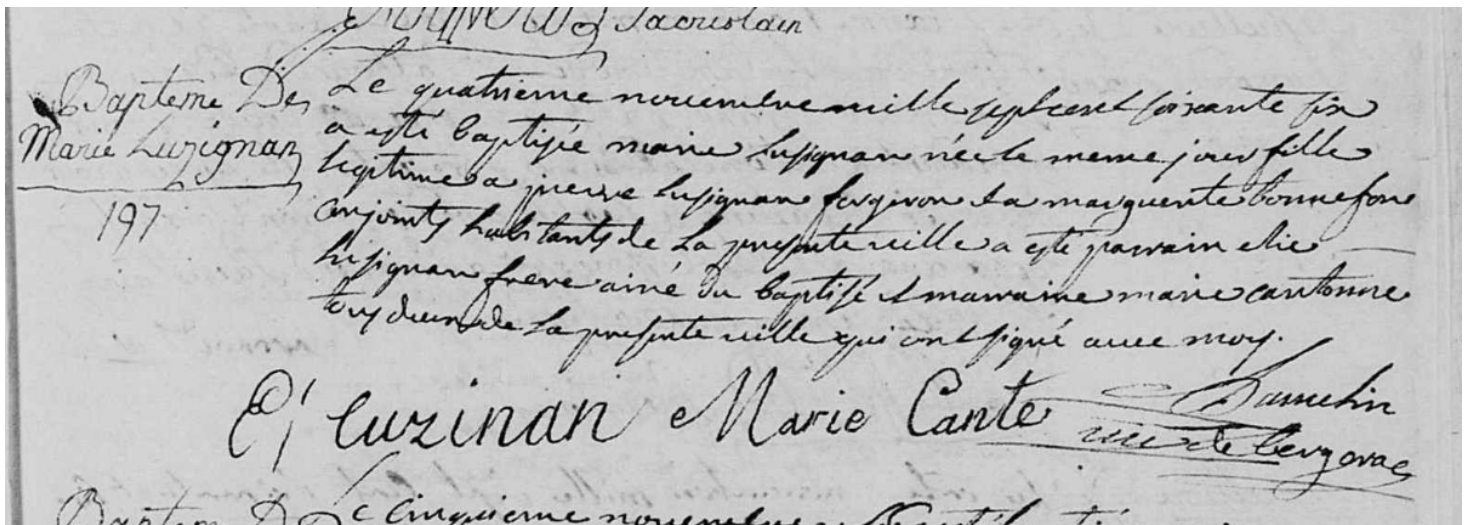 Sacristain
Bapteme De
Marie Luzignan
197
Le quatrieme novembre mille sept cent soixante six
a esté baptisée marie Lusignan née le meme jour fille
legitime a pierre Lusignan forgeron & a marguerite bonnefon
conjoints habitants de la presente ville a esté parrain elie
Lusignan frere ainé du baptisé & marraine marie cantonne
tous deux de la presente ville qui ont signé avec moy.
E Luzinan Marie Cante
vic de bergerac
Baptem D Le cinquieme novembre